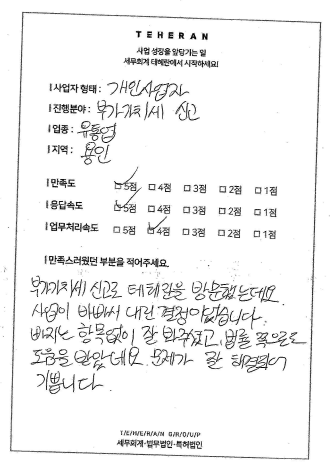 TEHERAN
사업 성장을 앞당기는 일
세무회계 테헤란에서 시작하세요!
| 사업자 형태 : 개인사업자
| 진행분야 : 부가가치세 신고
| 업종 : 유통업
| 지역 : 용인
| 만족도 ☑ 5점 □ 4점 □ 3점 □ 2점 □ 1점
| 응답속도 ☑ 5점 □ 4점 □ 3점 □ 2점 □ 1점
| 업무처리속도 □ 5점 ☑ 4점 □ 3점 □ 2점 □ 1점
| 만족스러웠던 부분을 적어주세요.
부가가치세 신고로 테헤란을 방문했는데요
사업이 바빠서 내린 결정이었습니다.
빠지는 항목없이 잘 봐주셨고, 법률 쪽으로
도움을 받았는데요. 문제가 잘 해결되어
기쁩니다.
TEHERAN GROUP
세무회계·법무법인·특허법인